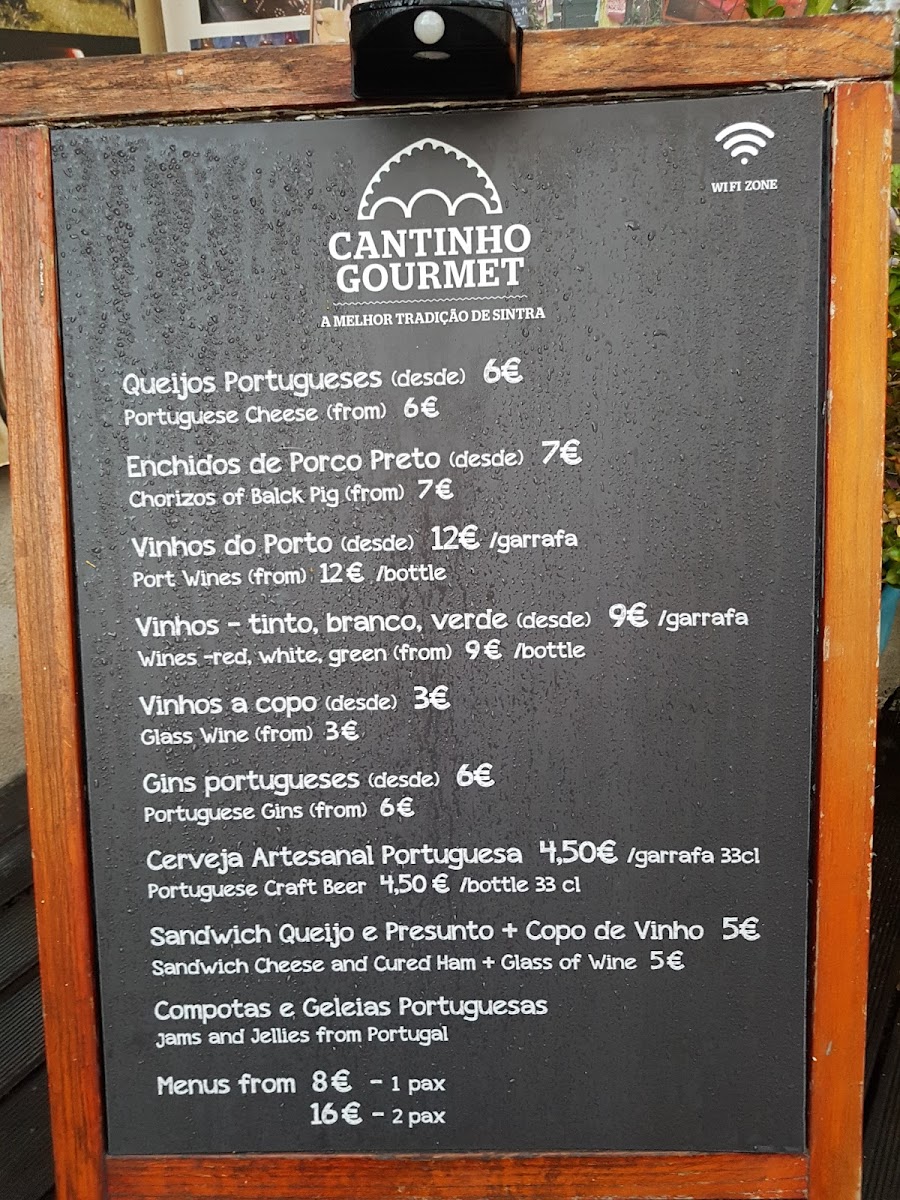 WIFI ZONE
CANTINHO
GOURMET
A MELHOR TRADIÇÃO DE SINTRA
Queijos Portugueses (desde) 6€
Portuguese Cheese (from) 6€
Enchidos de Porco Preto (desde) 7€
Chorizos of Balck Pig (from) 7€
Vinhos do Porto (desde) 12€ /garrafa
Port Wines (from) 12€ /bottle
Vinhos - tinto, branco, verde (desde) 9€ /garrafa
Wines -red, white, green (from) 9€ /bottle
Vinhos a copo (desde) 3€
Glass Wine (from) 3€
Gins portugueses (desde) 6€
Portuguese Gins (from) 6€
Cerveja Artesanal Portuguesa 4,50€ /garrafa 33cl
Portuguese Craft Beer 4,50 € /bottle 33 cl
Sandwich Queijo e Presunto + Copo de Vinho 5€
Sandwich Cheese and Cured Ham + Glass of Wine 5€
Compotas e Geleias Portuguesas
Jams and Jellies from Portugal
Menus from 8€ - 1 pax
16€ - 2 pax